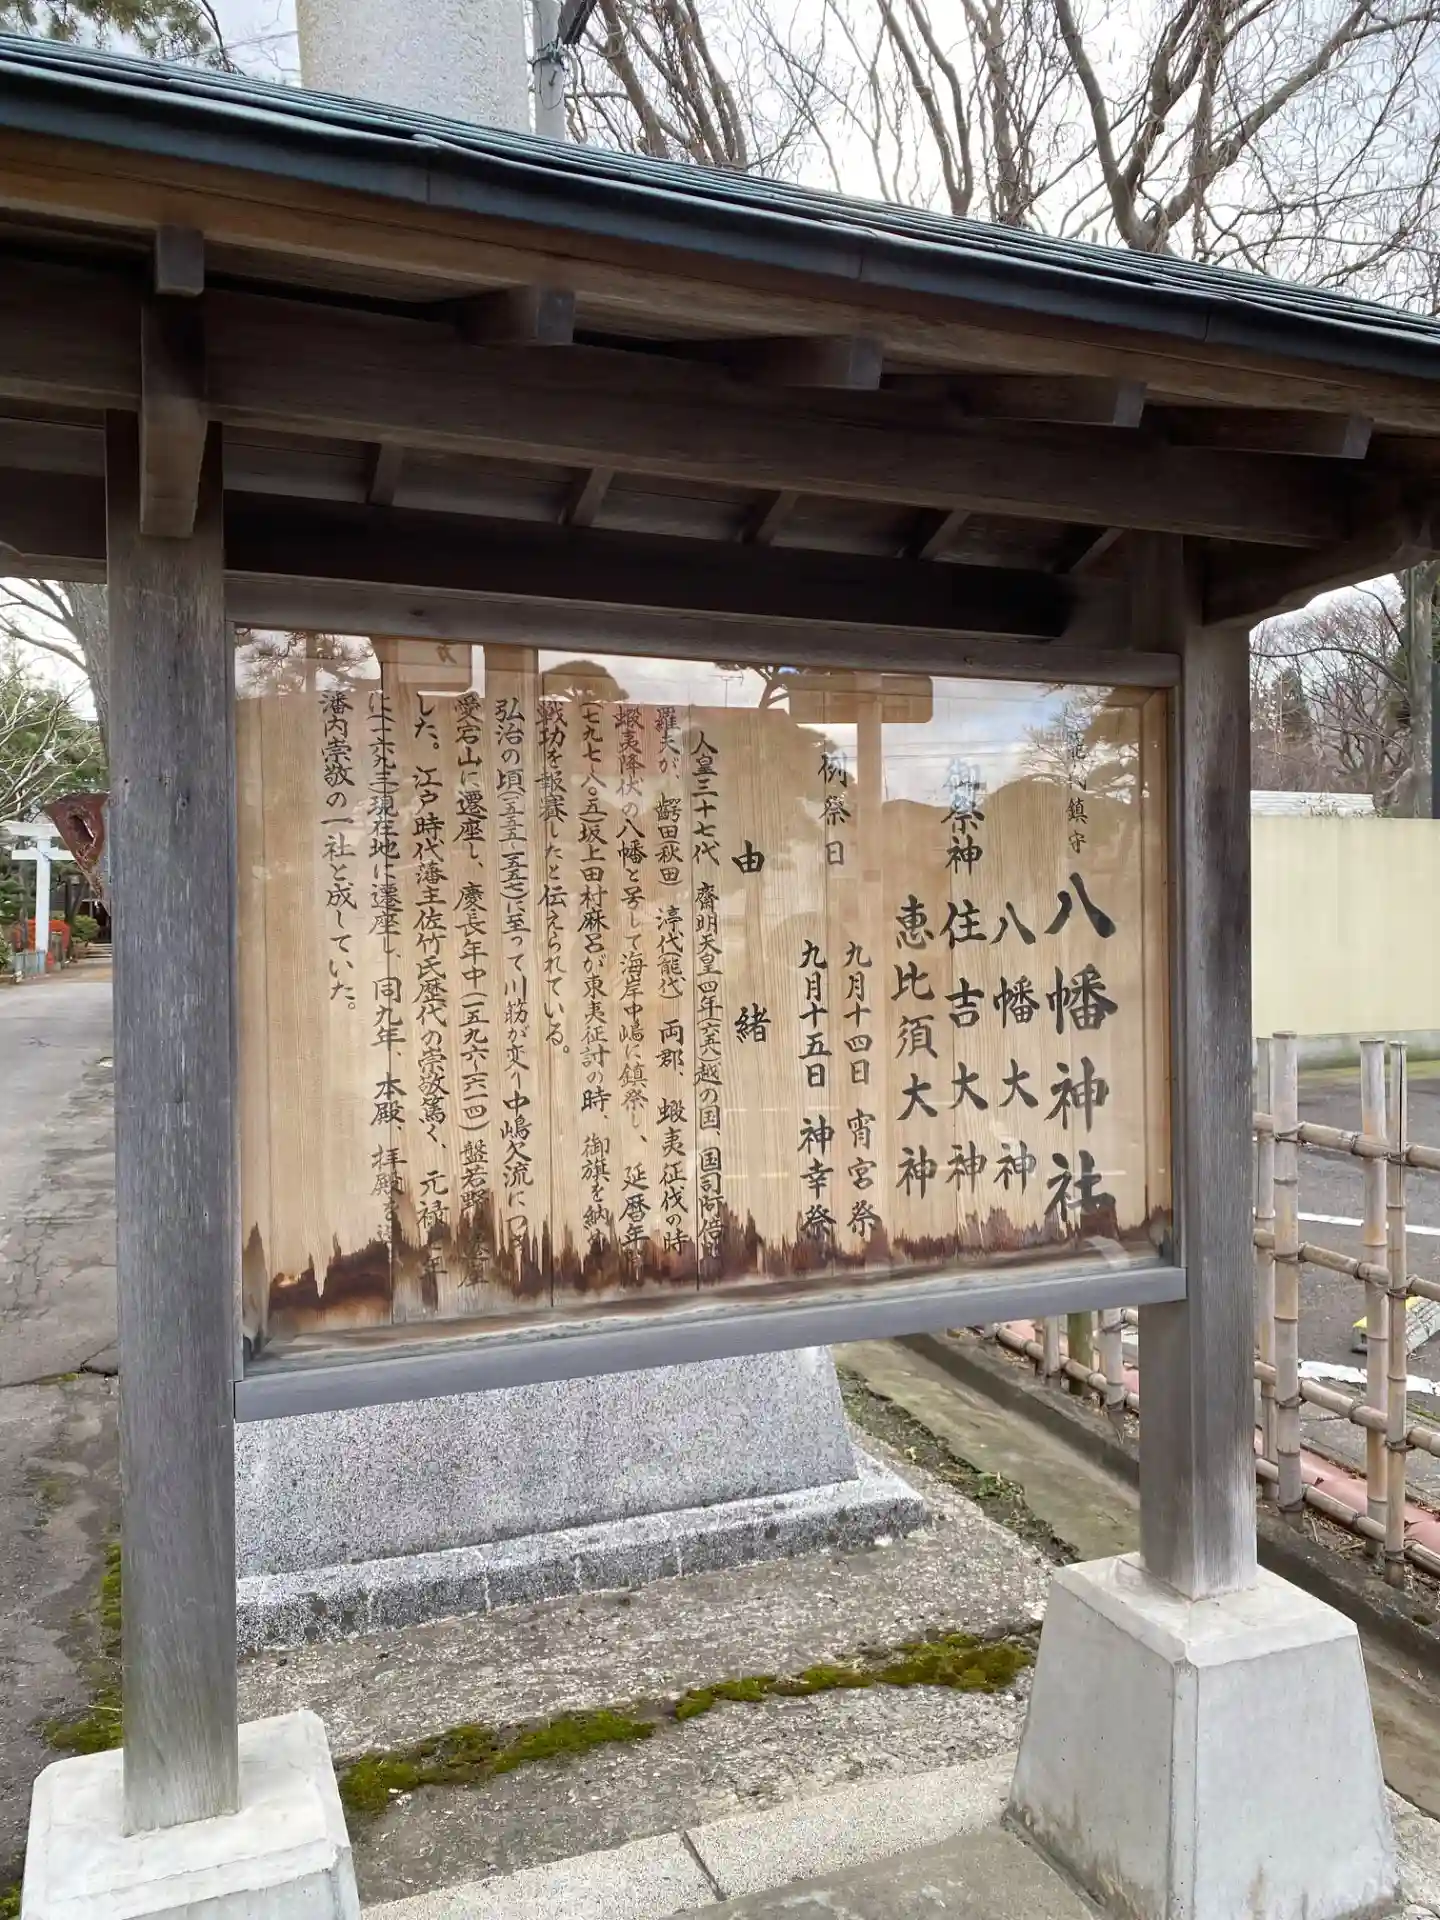 能代鎮守
八幡神社
御祭神
八幡大神
住吉大神
恵比須大神
例祭日
九月十四日 宵宮祭
九月十五日 神幸祭
由緒
人皇三十七代 齋明天皇四年(六五八)越の国、国司阿倍比
羅夫が、齶田(秋田) 渟代(能代) 両郡、蝦夷征伐の時
蝦夷降伏の八幡と号して海岸中嶋に鎮祭し、延暦年
(七九七~八〇五)坂上田村麻呂が東夷征討の時、御旗を納め
戦功を報賽したと伝えられている。
弘治の頃(一五五五~一五五七)に至って川筋が変り中嶋欠流につき
愛宕山に遷座し、慶長年中(一五九六~一六一四)盤若野 遷座
した。江戸時代藩主佐竹氏歴代の崇敬篤く、元禄 年
に(一六九三)現在地に遷座し、同九年、本殿、拝殿を
藩内崇敬の一社と成していた。